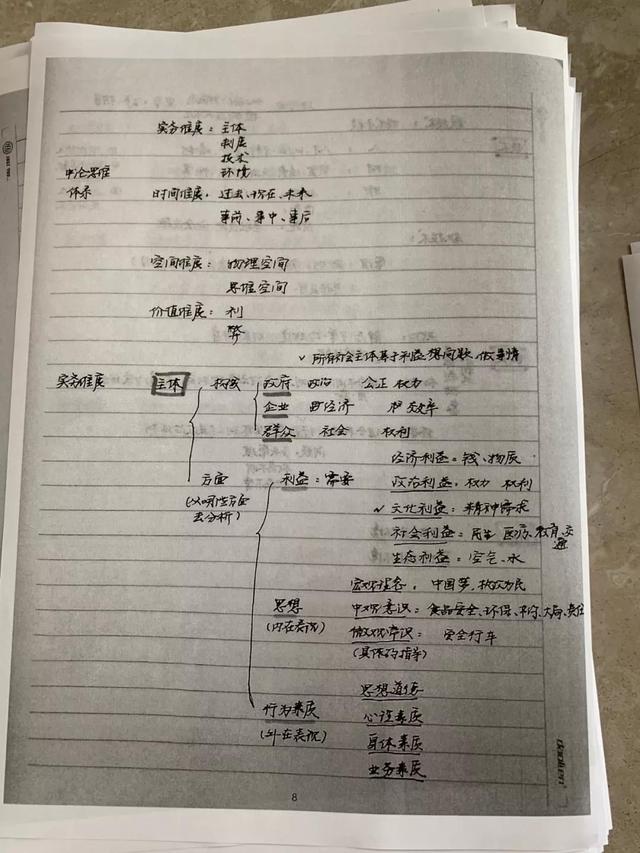 实务维度：主体
制度
技术
申论思维 环境
体系 时间维度：过去、现在、未来
事前、事中、事后
空间维度：物理空间
思维空间
价值维度：利
弊
✓ 所有社会主体基于利益想问题、做事情
实务维度 主体 构成 政府 政治 公正 权力
企业 经济 效率
群众 社会 权利
经济利益：钱、物质
方面 利益：需要 政治利益：权力 权利
(从哪些方面 ✓ 文化利益：精神需求
去分析) 社会利益：民生 医疗、教育、交通
生态利益：空气、水
宏观理念：中国梦、执政为民
思想 中观意识：食品安全、环保、大局、责任
(内在表现) 微观常识：安全行车
(具体的指导)
思想道德
行为素质 心理素质
(外在表现) 身体素质
业务素质
8